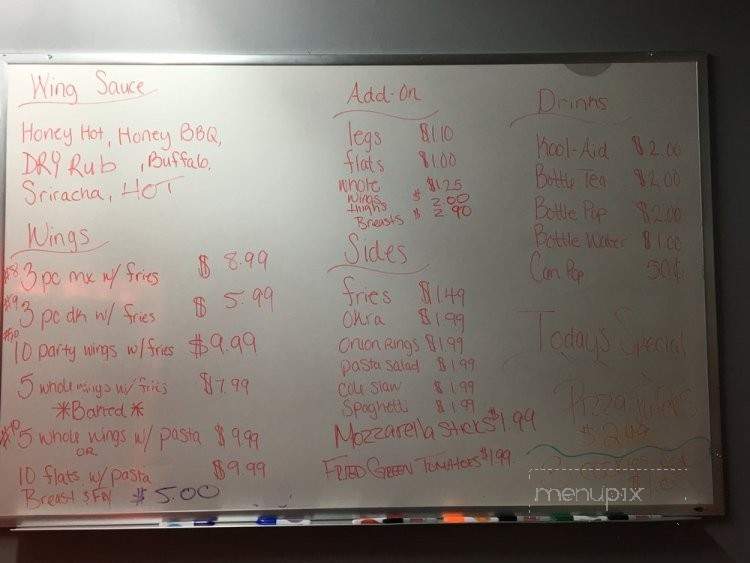 Wing Sauce
Honey Hot, Honey BBQ,
DRY Rub, Buffalo,
Sriracha, HOT
Wings
#8 3 pc mx w/ fries $8.99
#9 3 pc dk w/ fries $5.99
10 party wings w/ fries $9.99
5 whole wings w/ fries $7.99
*Battered*
5 whole wings w/ pasta $9.99
OR
10 flats w/ pasta $9.99
Breast $5.00
Add-On
legs $1.10
flats $1.00
whole wings $1.25
thighs $2.00
Breasts $2.90
Sides
fries $1.49
Okra $1.99
Onion Rings $1.99
pasta salad $1.99
cole slaw $1.99
Spaghetti $1.99
Mozzarella Sticks $1.99
Fried Green Tomatoes $1.99
Drinks
Kool-Aid $2.00
Bottle Tea $2.00
Bottle Pop $2.00
Bottle Water $1.00
Can Pop 50¢
Todays Special
Pizza
$2.99
menupix